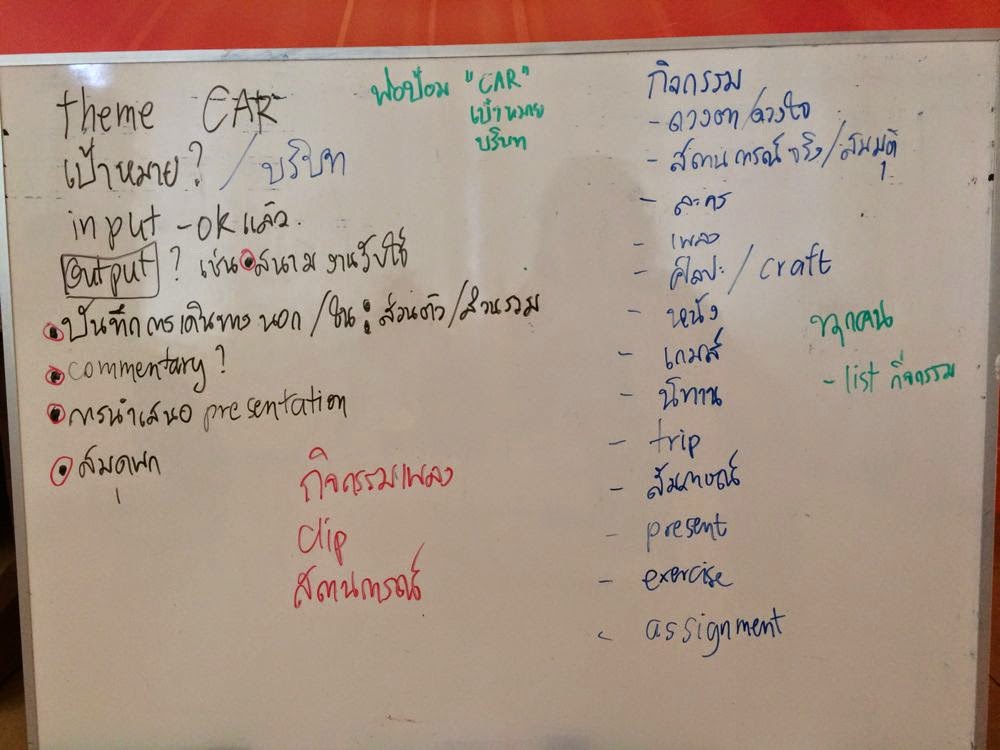 theme CAR
เป้าหมาย? / บริบท
input - ok แล้ว.
output ? เช่น สนาม งานวันใช้
บันทึกการเดินทาง นอก / ใน : ส่วนตัว / ส่วนรวม
commentary ?
การนำเสนอ presentation
สมุดพก
พ่อป้อม "CAR"
เป้าหมาย
บริบท
กิจกรรมเพลง
clip
สถานการณ์
กิจกรรม
- ดวงตา / ดวงใจ
- สถานการณ์จริง / สมมุติ
- ละคร
- เพลง
- ศิลปะ / craft
- หนัง
- เกมส์
- นิทาน
- trip
- สัมภาษณ์
- present
- exercise
- assignment
ทุกคน
- list กิจกรรม